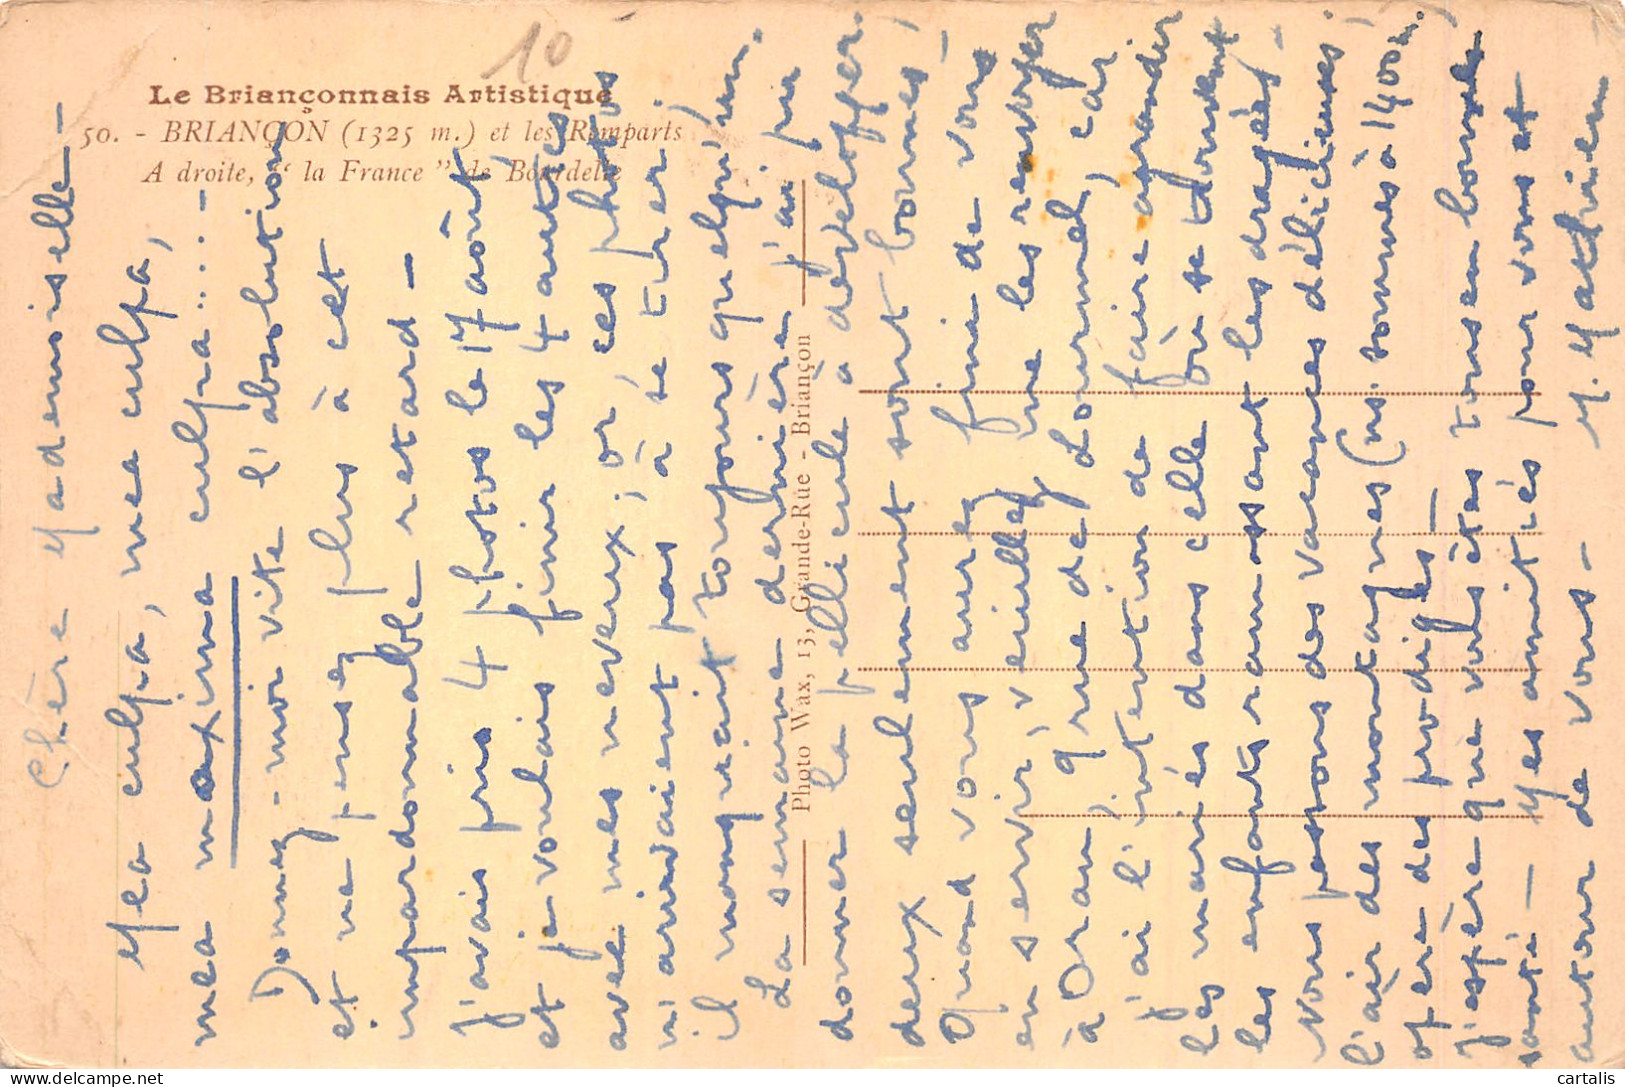 10
Le Briançonnais Artistique
50. - BRIANÇON (1325 m.) et les Remparts
A droite, " la France " de Bourdelle
Photo Wax, 13, Grande-Rue - Briançon
Chère Mademoiselle -
Mea culpa, mea culpa,
mea maxima culpa.... -
Donnez-moi vite l'absolution
et ne pensez plus à cet
impardonnable retard -
J'avais pris 4 photos le 17 août
et je voulais finir les 4 autres
avec mes neveux ; or, ces photos
n'arrivaient pas à se tirer.
il manquait toujours quelqu'un.
La semaine dernière j'ai pu
donner la pellicule à développer.
deux seulement sont bonnes,
Quand vous aurez fini de vous
en servir, veuillez me les renvoyer
à Oran, 9 rue de Lourmel, car
j'ai l'intention de faire agrandir
les mariés dans celle où se trouvent
les enfants ramassant les dragées -
Nous passons des vacances délicieuses !
l'air des montagnes (ns. sommes à 1400m.)
opère des prodiges -
J'espère que vous êtes tous en bonne
santé - Mes amitiés pour vous et
autour de vous - M. Mathieu
cartalis